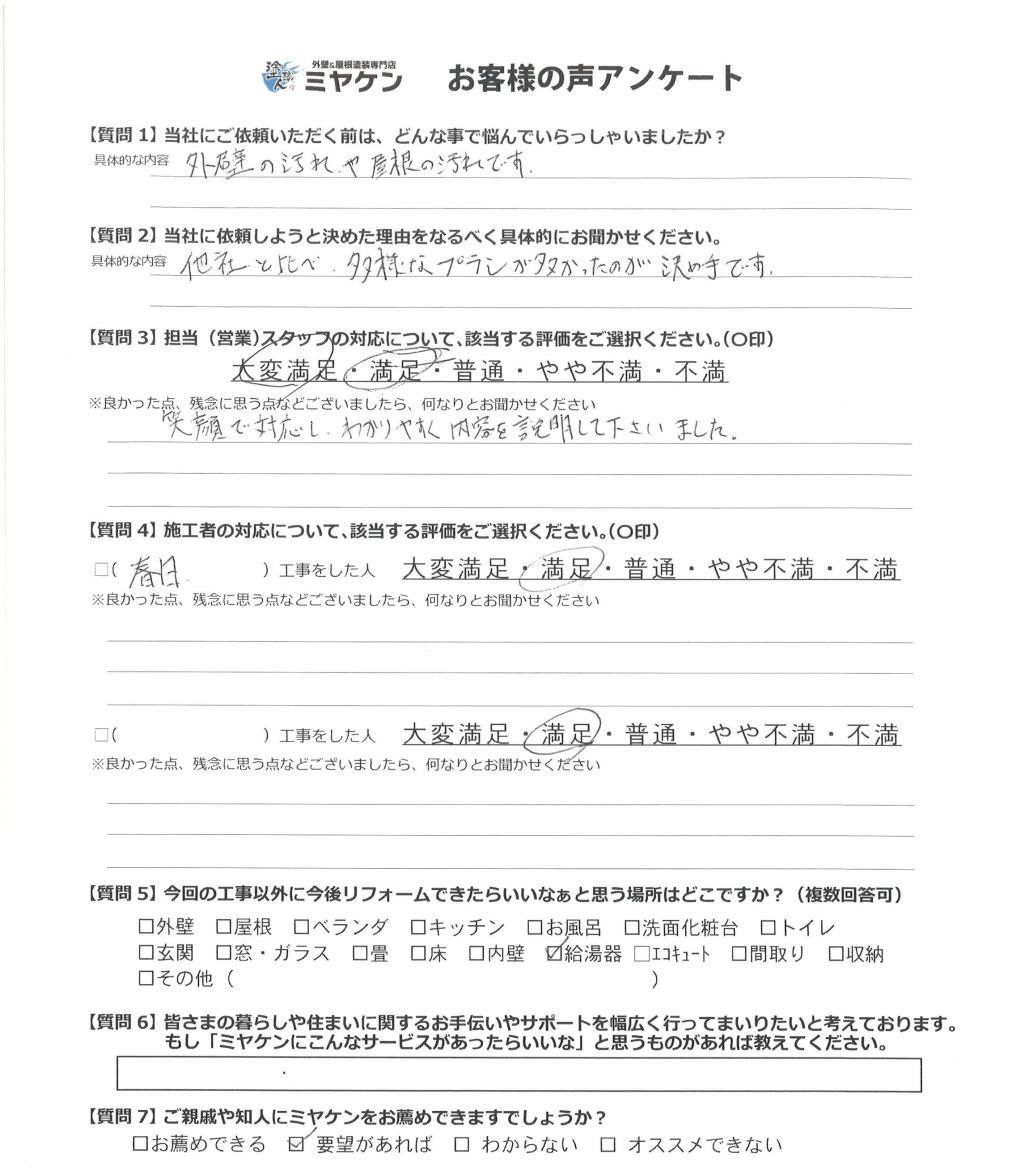 外壁&屋根塗装専門店
塗職人 ミヤケン お客様の声アンケート
【質問 1】当社にご依頼いただく前は、どんな事で悩んでいらっしゃいましたか？
具体的な内容 外壁の汚れ、や屋根の汚れです.
【質問 2】当社に依頼しようと決めた理由をなるべく具体的にお聞かせください。
具体的な内容 他社と比べ、多様なプランが多かったのが決め手です.
【質問 3】担当（営業）スタッフの対応について、該当する評価をご選択ください。（〇印）
大変満足・満足・普通・やや不満・不満
※良かった点、残念に思う点などございましたら、何なりとお聞かせください
笑顔で対応し、わかりやすく内容を説明して下さいました。
【質問 4】施工者の対応について、該当する評価をご選択ください。（〇印）
□（春日 ）工事をした人 大変満足・満足・普通・やや不満・不満
※良かった点、残念に思う点などございましたら、何なりとお聞かせください
□（ ）工事をした人 大変満足・満足・普通・やや不満・不満
※良かった点、残念に思う点などございましたら、何なりとお聞かせください
【質問 5】今回の工事以外に今後リフォームできたらいいなぁと思う場所はどこですか？（複数回答可）
□外壁 □屋根 □ベランダ □キッチン □お風呂 □洗面化粧台 □トイレ
□玄関 □窓・ガラス □畳 □床 □内壁 ☑給湯器 □ｴｺｷｭｰﾄ □間取り □収納
□その他（ ）
【質問 6】皆さまの暮らしや住まいに関するお手伝いやサポートを幅広く行ってまいりたいと考えております。
もし「ミヤケンにこんなサービスがあったらいいな」と思うものがあれば教えてください。
【質問 7】ご親戚や知人にミヤケンをお薦めできますでしょうか？
□お薦めできる ☑ 要望があれば □ わからない □ オススメできない